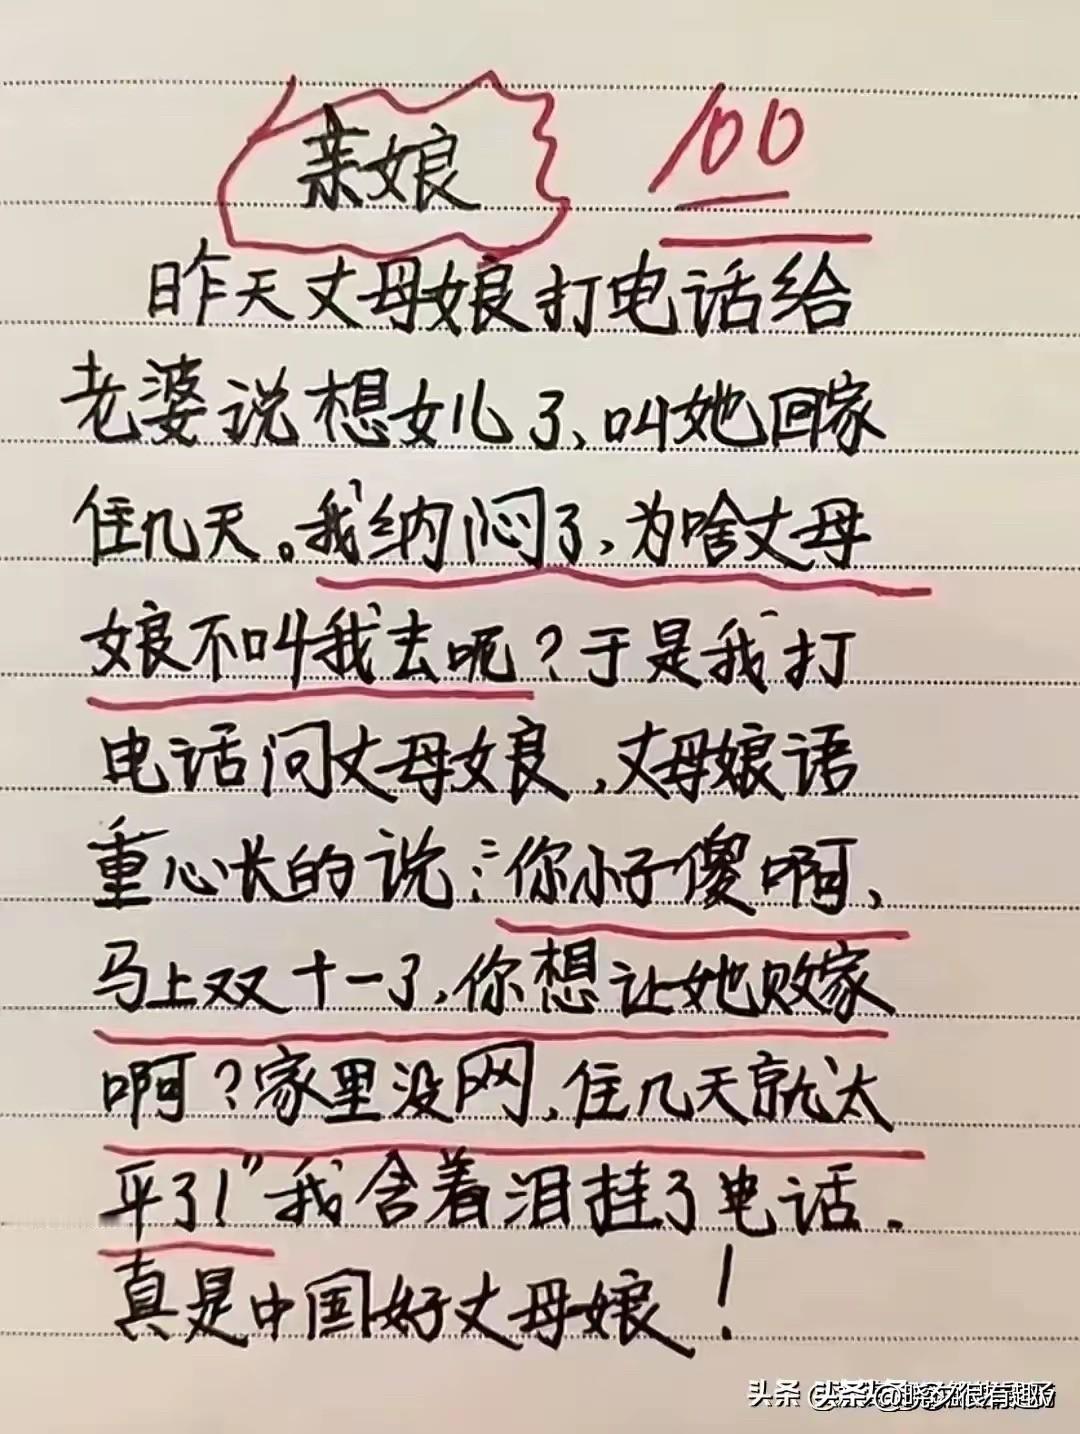 亲娘 100
昨天丈母娘打电话给
老婆说想女儿了、叫她回家
住几天。我纳闷了,为啥丈母
娘不叫我去呢?于是我打
电话问丈母娘,丈母娘语
重心长的说:“你小子傻啊、
马上双十一了,你想让她败家
啊?家里没网,住几天就太
平了!”我含着泪挂了电话.
真是中国好丈母娘!
头条 头条 @晓艾很有趣